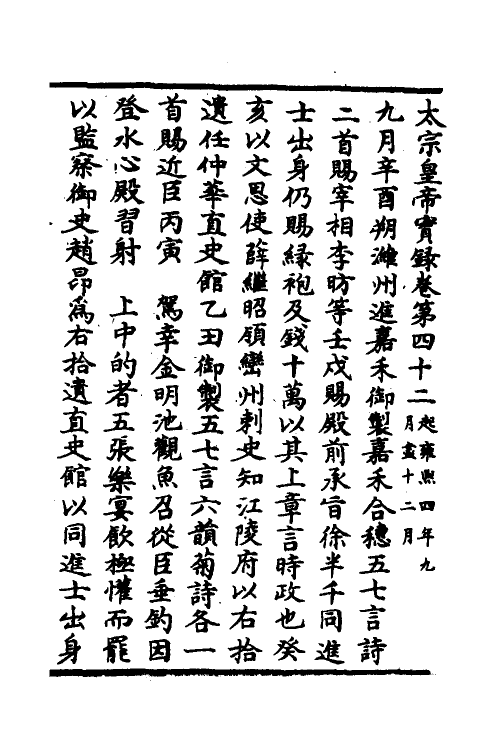 太宗皇帝實錄卷第四十二起雍熙四年九月盡十二月
九月辛酉朔濰州進嘉禾御製嘉禾合穗五七言詩
二首賜宰相李昉等壬戌賜殿前承旨徐半千同進
士出身仍賜緑袍及錢十萬以其上章言時政也癸
亥以文思使薛繼昭領巒州刺史知江陵府以右拾
遺任仲華直史館乙丑御製五七言六韻菊詩各一
首賜近臣丙寅　駕幸金明池觀魚召從臣垂釣因
登水心殿習射　上中的者五張樂宴飲極懽而罷
以監察御史趙昂爲右拾遺直史館以同進士出身